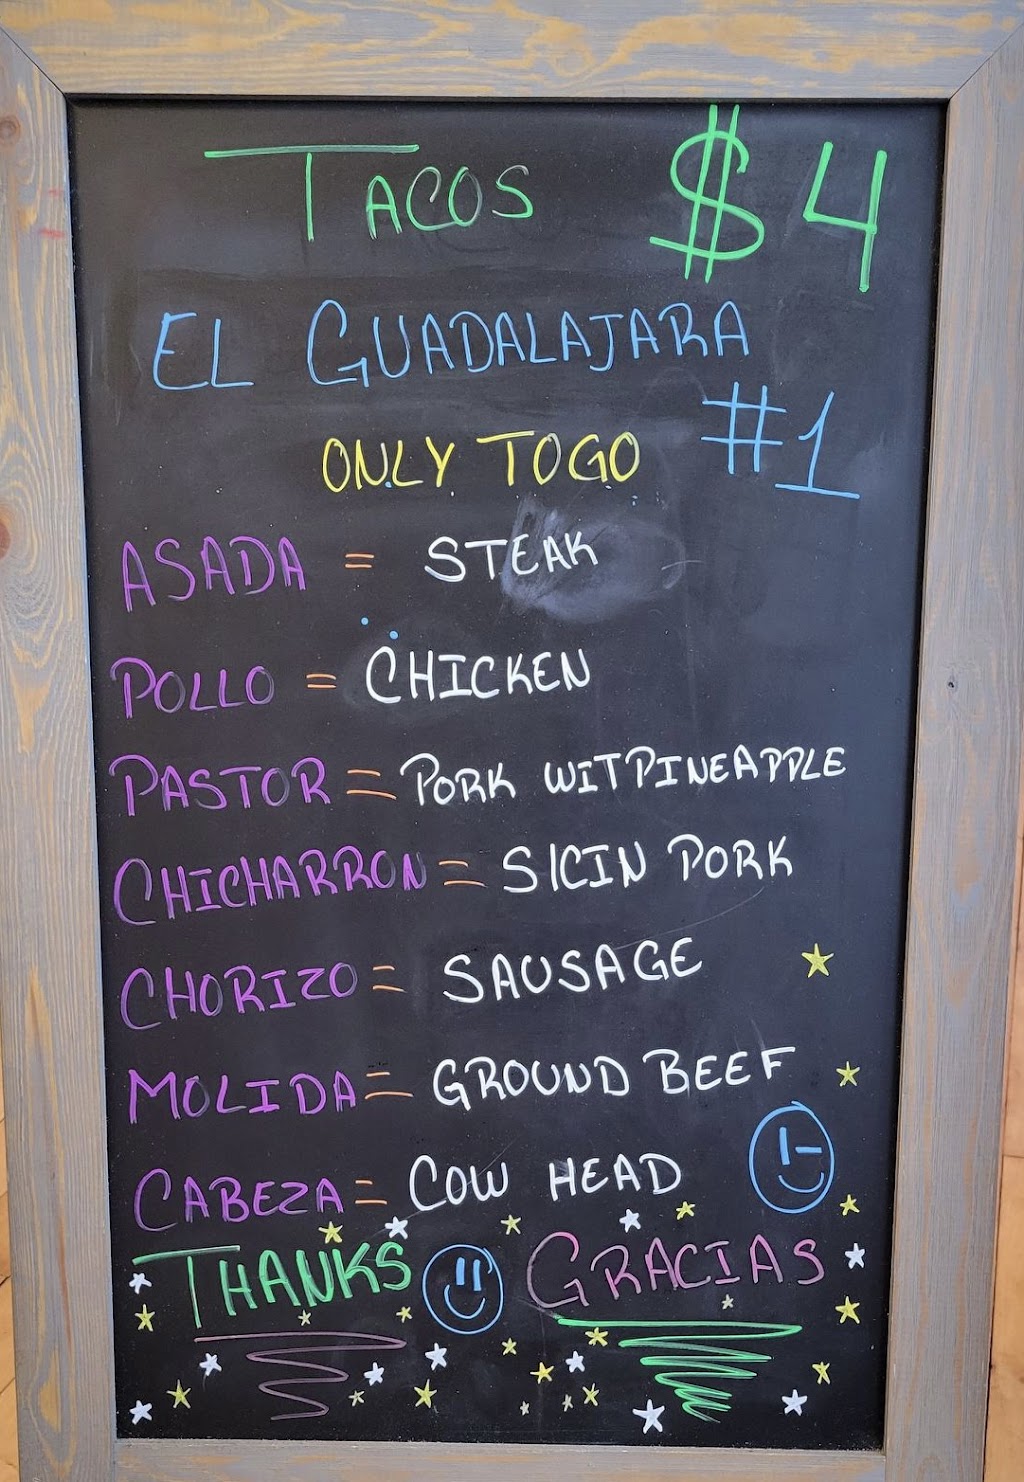 TACOS $4
EL GUADALAJARA
#1
ONLY TOGO
ASADA = STEAK
POLLO = CHICKEN
PASTOR = PORK WITPINEAPPLE
CHICHARRON = SICIN PORK
CHORIZO = SAUSAGE
MOLIDA = GROUND BEEF
CABEZA = COW HEAD
THANKS GRACIAS